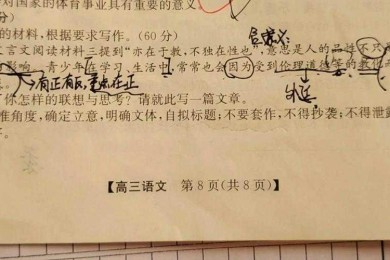 对国家的体育事业具有重要的意义
分)
的材料,根据要求写作。(60分)
言文阅读材料三提到“亦在于教,不独在性也”,意思是人的品性不只
影响。青少年在学习、生活中,常常也会因为受到伦理道德等的
有正有反,重点在正
了你怎样的联想与思考?请就此写一篇文章。
准角度,确定立意,明确文体,自拟标题;不要套作,不得抄袭;不得泄露
。
【高三语文 第8页(共8页)】